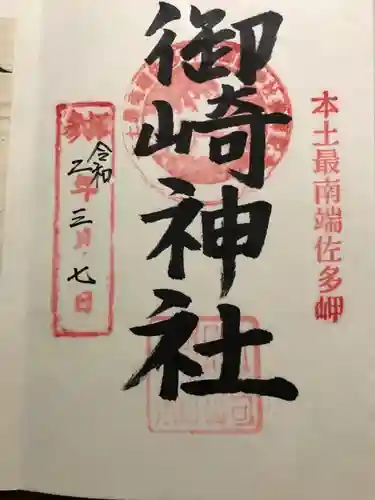 本土最南端佐多岬
御崎神社
参拝
令和
二年三月七日